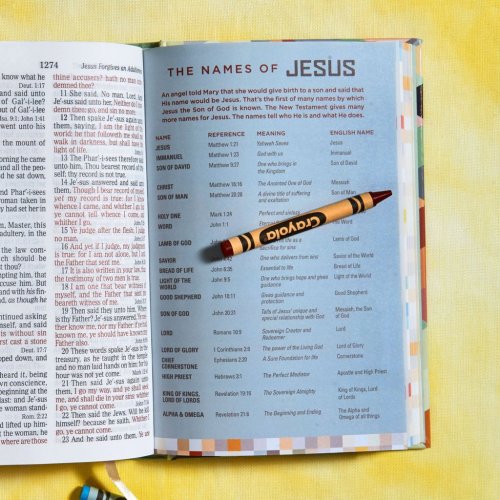 1274
Jesus Forgives an
know what he
Deut. 1:17
and said unto
of Gal'-i-lee?
out of Gal'-i-lee
Isa. 9:1; John 1:41
went unto his
the mount of
morning he came
and all the peo-
he sat down,
and Phar'-i-sees
woman taken in
had set her in
him, Master, this
adultery, in the
the law com-
should be
tempting him, that
accuse him. But
and with his fin-
as though he
continued asking
himself, and said
is without sin
first cast a stone
Deut. 17:7
stooped down, and
heard it, being
own conscience,
beginning at the
last: and Je'-sus
woman stand-
Rom. 2:22
had lifted up him-
the woman, he
where are those
thine accusers? hath no man con-
demned thee?
11 She said, No man, Lord. And
Je'-sus said unto her, Neither do I con-
demn thee: go, and sin no more.
12 Then spake Je'-sus again unto
them, saying, I am the light of the
world: he that followeth me shall not
walk in darkness, but shall have the
light of life.
13 The Phar'-i-sees therefore said
unto him, Thou bearest record of thy-
self; thy record is not true.
14 Je'-sus answered and said unto
them, Though I bear record of myself,
yet my record is true: for I know
whence I came, and whither I go; but
ye cannot tell whence I come, and
whither I go.
15 Ye judge after the flesh; I judge
no man.
16 And yet if I judge, my judgment
is true: for I am not alone, but I and
the Father that sent me.
17 It is also written in your law, that
the testimony of two men is true.
18 I am one that bear witness of
myself, and the Father that sent me
beareth witness of me.
19 Then said they unto him, Where
is thy Father? Je'-sus answered, Ye nei-
ther know me, nor my Father: if ye had
known me, ye should have known my
Father also.
20 These words spake Je'-sus in the
treasury, as he taught in the temple:
and no man laid hands on him; for his
hour was not yet come.
21 Then said Je'-sus again unto
them, I go my way, and ye shall seek
me, and shall die in your sins: whither
I go, ye cannot come.
22 Then said the Jews, Will he kill
himself? because he saith, Whither I
go, ye cannot come.
23 And he said unto them, Ye are
THE NAMES OF JESUS
An angel told Mary that she would give birth to a son and said that
His name would be Jesus. That's the first of many names by which
Jesus the Son of God is known. The New Testament gives many
more names for Jesus. The names tell who He is and what He does.
NAME REFERENCE MEANING ENGLISH NAME
JESUS Matthew 1:21 Yahweh Saves Jesus
IMMANUEL Matthew 1:23 God with us Immanuel
SON OF DAVID Matthew 9:27 One who brings in Son of David
the Kingdom
CHRIST Matthew 16:16 The Anointed One of God Messiah
SON OF MAN Matthew 20:28 A divine title of suffering Son of Man
and exaltation
HOLY ONE Mark 1:24 Perfect and sinless
WORD John 1:1
LAMB OF GOD life as a Lamb of God
sacrifice for sins
SAVIOR One who delivers from sins Savior of the World
BREAD OF LIFE John 6:35 Essential to life Bread of Life
LIGHT OF THE John 9:5 One who brings hope and gives Light of the World
WORLD guidance
GOOD SHEPHERD John 10:11 Gives guidance and Good Shepherd
protection
SON OF GOD John 20:31 Tells of Jesus' unique and Messiah, the Son
special relationship with God of God
LORD Romans 10:9 Sovereign Creator and Lord
Redeemer
LORD OF GLORY I Corinthians 2:8 The power of the Living God Lord of Glory
CHIEF Ephesians 2:20 A Sure Foundation for life Cornerstone
CORNERSTONE
HIGH PRIEST Hebrews 3:1 The Perfect Mediator Apostle and High Priest
KING OF KINGS, Revelation 19:16 The Sovereign Almighty King of Kings, Lord
LORD OF LORDS of Lords
ALPHA & OMEGA Revelation 21:6 The Beginning and Ending The Alpha and
Omega of all things
Crayola